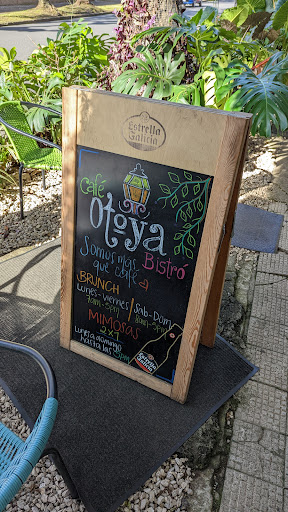 Estrella
Galicia
Café
Otoya
Bistró
Somos más
que café
BRUNCH
Lunes-viernes / Sab-Dom
7am-5pm / 8am-4pm
MIMOSAS
2x1
Lunes a domingo
hasta las 3pm
Estrella
Galicia